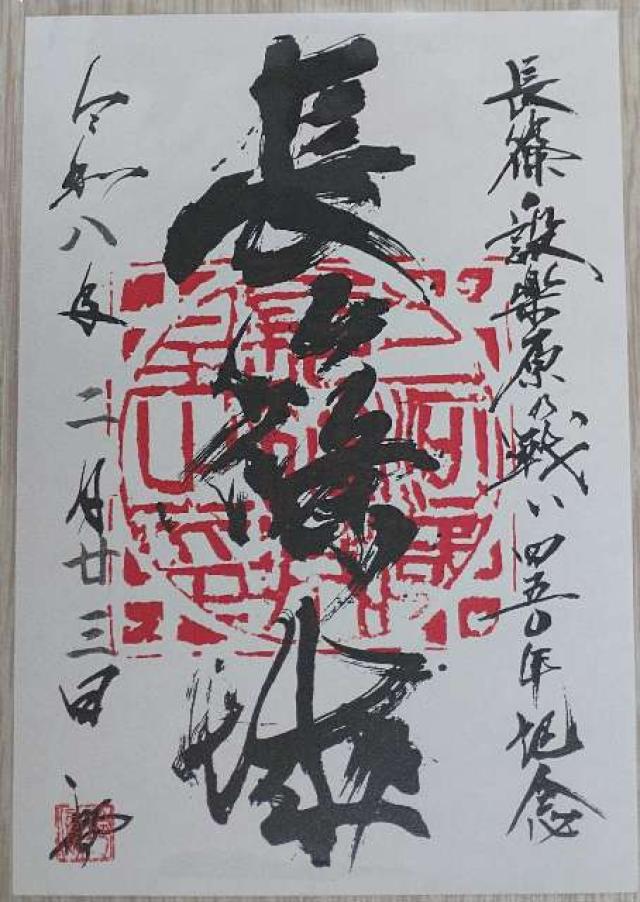 長篠設楽原の戦い四五〇年記念
長篠城
令和八年二月廿三日